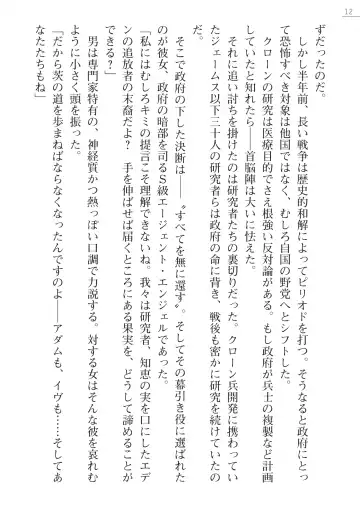 12
ずだったのだ。
　しかし半年前、長い戦争は歴史的和解によってピリオドを打つ。そうなると政府にとっ
て恐怖すべき対象は他国ではなく、むしろ自国の野党へとシフトした。
　クローンの研究は医療目的でさえ根強い反対論がある。もし政府が兵士の複製など計画
していたと知れたら――首脳陣は大いに怯えた。
　それに追い討ちを掛けたのは研究者たちの裏切りだった。クローン兵開発に携わってい
たジェームス以下三十人の研究者らは政府の命に背き、戦後も密かに研究を続けていたの
だ。
　そこで政府の下した決断は――〝すべてを無に還す〟。そしてその幕引き役に選ばれた
のが彼女、政府の暗部を司るS級エージェント・エンジェルであった。
「私にはむしろキミの提言こそ理解できないね。我々は研究者、知恵の実を口にしたエデ
ンの追放者の末裔だよ？　手を伸ばせば届くところにある果実を、どうして諦めることが
できる？」
　男は専門家特有の、神経質かつ熱っぽい口調で力説する。対する女はそんな彼を哀れむ
ように小さく頭を振った。
「だから茨の道を歩まねばならなくなったんですのよ――　アダムも、イヴも……そしてあ
なたたちもね」